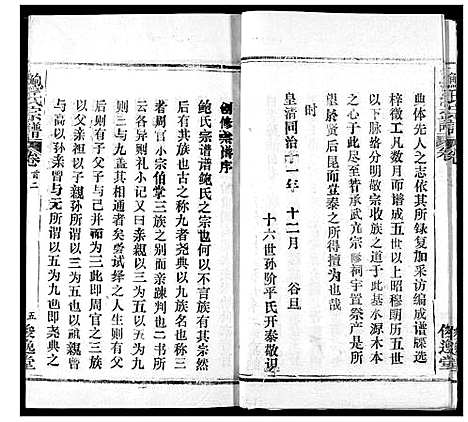 鮑氏宗譜
卷
曲体先人之志依其所録复加采访编成谱牒选
梓徵工凡数月而谱成五世以上昭穆阴历五世
以下支派分明敬宗收族之道于以基水源木本
之心于此尽至昔承武充宗修祠宇置祭产是所
望於贤后昆而萱泰之所得擅为
时
皇清同治十一年 十二月 谷旦
十六世孙阶平氏开泰敬识
傑選堂
创修宗谱序
鲍氏宗谱谱鲍氏之宗也何以不言族有其宗然
后有其族也古之称九者尧典以九族名也称三
者周官小宗伯掌三族之别而亲疎判也二书所
云各异而礼小记又曰亲亲以三为五以五为九
则三与九盖其相通者矣尝试绎之人生则有父
有父则有子己并父子而为三此即周官三族也
以父亲祖以子亲孙所谓以三为五也以祖亲曾
与高以孙亲曾与元所谓以五为九也即尧典之
鮑氏宗譜
卷首二
五